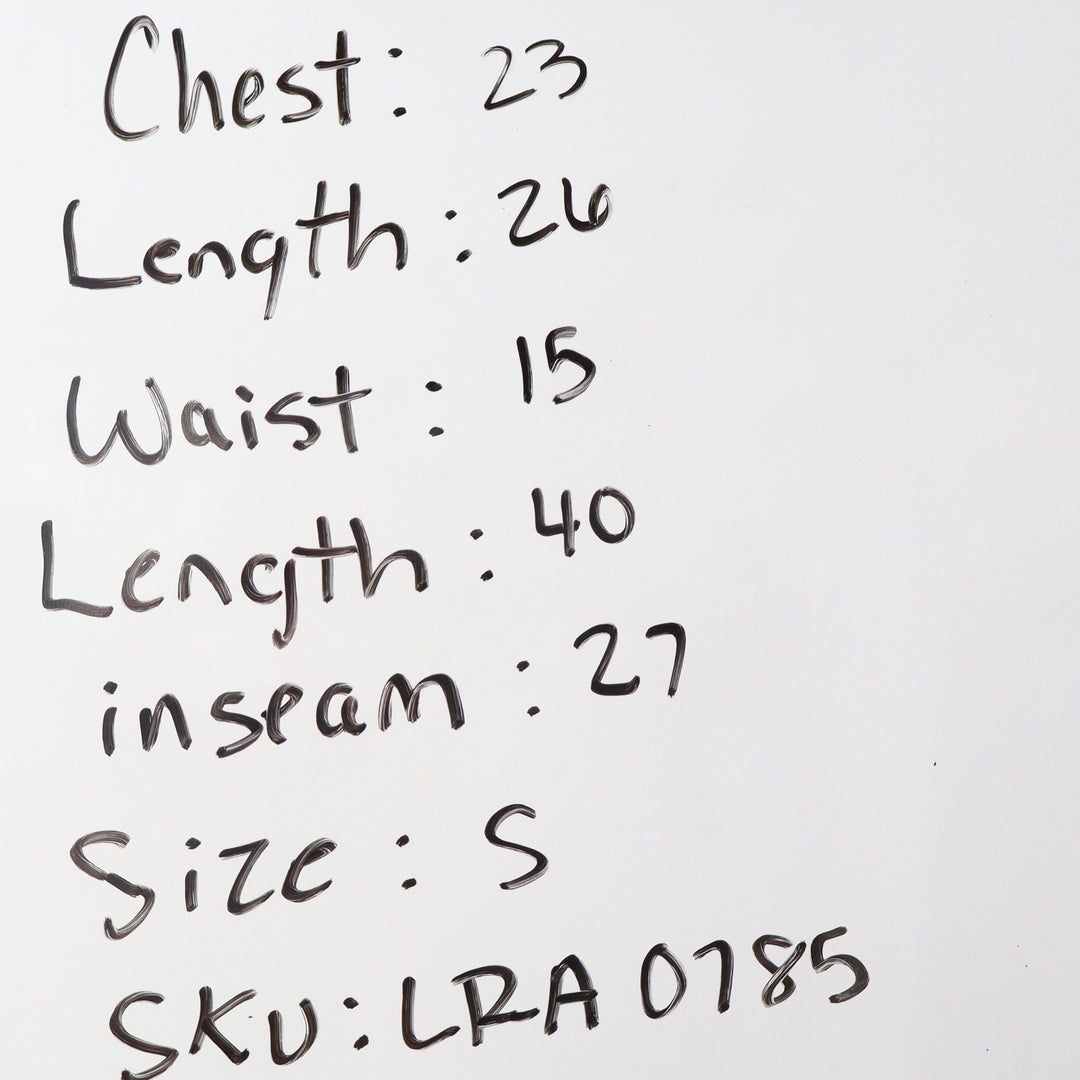 Chest: 23
Length: 26
Waist: 15
Length: 40
inseam: 27
Size: S
SKU: LRA 0785